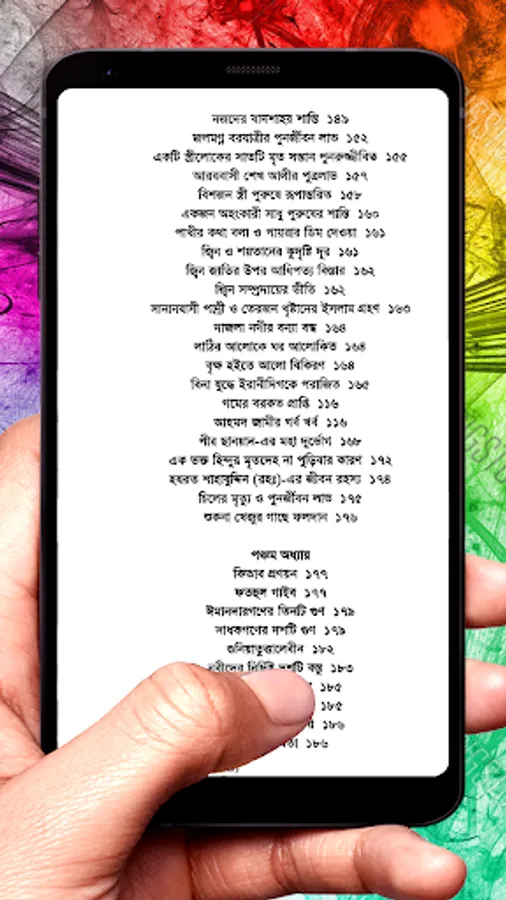 নজদের বাদশাহর শাস্তি ১৪৯
জলমগ্ন বরযাত্রীর পুনর্জীবন লাভ ১৫২
একটি স্ত্রীলোকের সাতটি মৃত সন্তান পুনরুজ্জীবিত ১৫৫
আরববাসী শেখ আলীর পুত্রলাভ ১৫৭
বিশজন স্ত্রী পুরুষে রূপান্তরিত ১৫৮
একজন অহংকারী সাধু পুরুষের শাস্তি ১৬০
পাখীর কথা বলা ও পায়রার ডিম দেওয়া ১৬১
জ্বিন ও শয়তানের কুদৃষ্টি দূর ১৬১
জ্বিন জাতির উপর আধিপত্য বিস্তার ১৬২
জ্বিন সম্প্রদায়ের ভীতি ১৬২
সানানবাসী পাদ্রী ও তেরজন খৃষ্টানের ইসলাম গ্রহণ ১৬৩
দাজলা নদীর বন্যা বন্ধ ১৬৪
লাঠির আলোকে ঘর আলোকিত ১৬৪
বৃক্ষ হইতে আলো বিকিরণ ১৬৪
বিনা যুদ্ধে ইরানীদিগকে পরাজিত ১৬৫
গমের বরকত প্রাপ্তি ১১৬
আহমদ জামীর গর্ব খর্ব ১১৬
পীর ছানয়ান-এর মহা দুর্ভোগ ১৬৮
এক ভক্ত হিন্দুর মৃতদেহ না পুড়িবার কারণ ১৭২
হযরত শাহাবুদ্দিন (রহঃ)-এর জীবন রহস্য ১৭৪
চিলের মৃত্যু ও পুনর্জীবন লাভ ১৭৫
শুকনা খেজুর গাছে ফলদান ১৭৬
পঞ্চম অধ্যায়
কিতাব প্রণয়ন ১৭৭
ফতহুল গাইব ১৭৭
ঈমানদারগণের তিনটি গুণ ১৭৯
সাধকগণের দশটি গুণ ১৭৯
গুনিয়াতুত্তালেবীন ১৮২
নির্দিষ্ট দশটি বস্তু ১৮৩
১৮৫
১৮৫
১৮৬
১৮৬